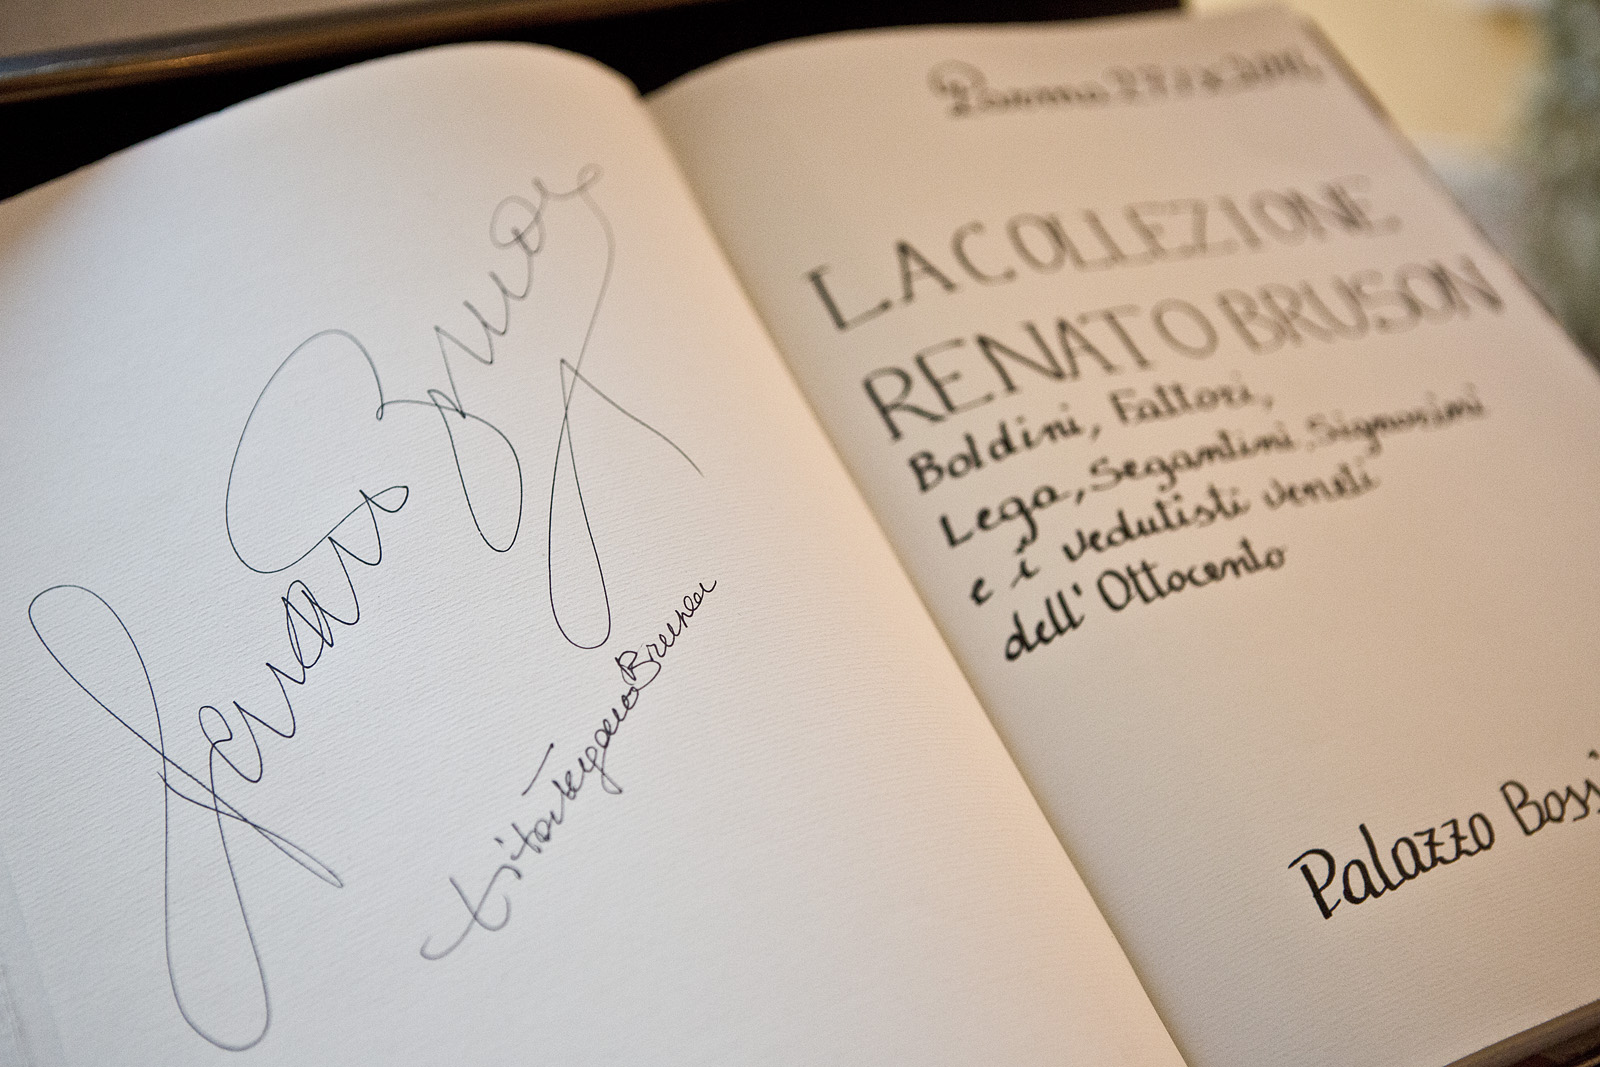 Renato Bruson
Tita Tegano Bruson
Parma
LA COLLEZIONE
RENATO BRUSON
Boldini, Fattori,
Lega, Segantini, Signorini
e i vedutisti veneti
dell' Ottocento
Palazzo Bossi